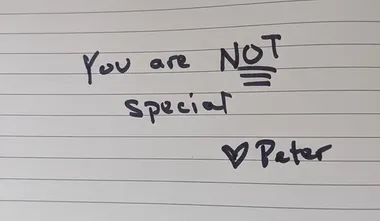 You are NOT
special
♡ Peter